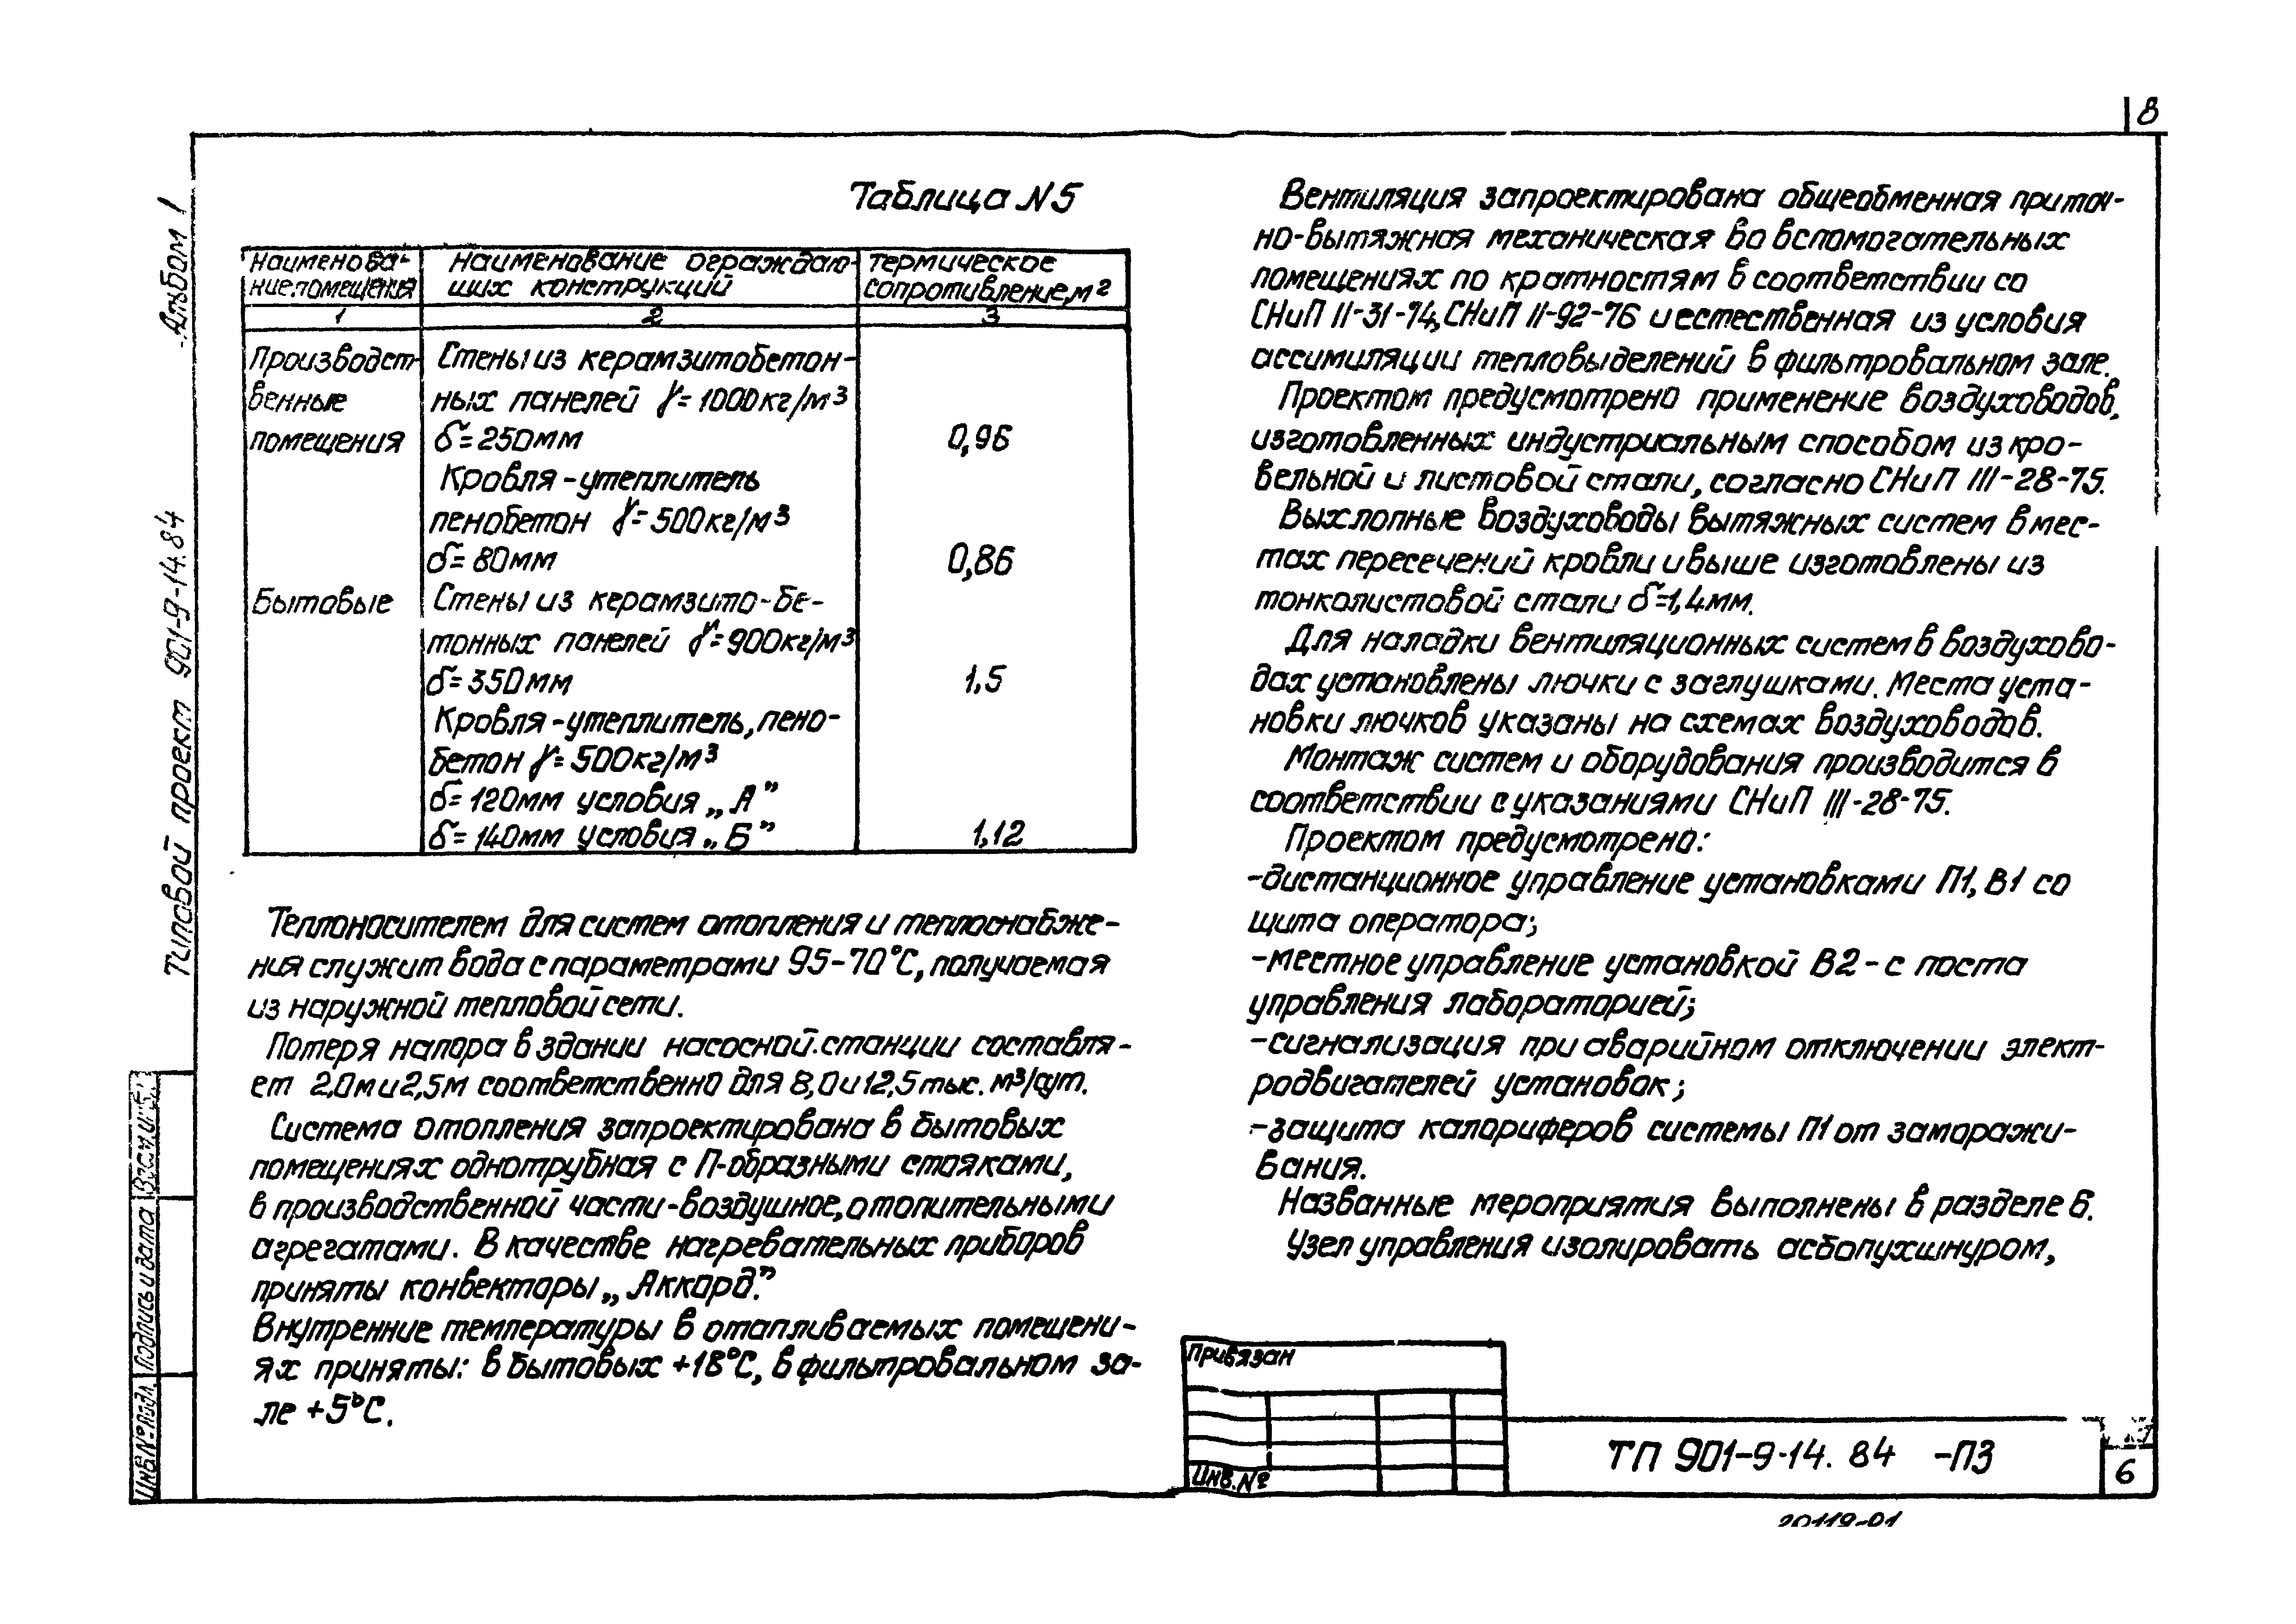 8
Альбом 1
Типовой проект 901-9-14.84
Таблица N5
Наименова- | наименование ограждаю- | термическое
ние помещения | щих конструкций | сопротивление, м²
1 | 2 | 3
Производст- | Стены из керамзитобетон-
венные | ных панелей γ=1000кг/м³
помещения | δ=250мм | 0,96
Кровля-утеплитель
пенобетон γ=500кг/м³
δ=80мм | 0,86
Бытовые | Стены из керамзито-бе-
тонных панелей γ=900кг/м³
δ=350мм | 1,5
Кровля-утеплитель, пено-
бетон γ=500кг/м³
δ=120мм условия „А”
δ=140мм условия „Б” | 1,12
Теплоносителем для систем отопления и теплоснабже-
ния служит вода с параметрами 95-70°С, получаемая
из наружной тепловой сети.
Потеря напора в здании насосной станции составля-
ет 2,0м и 2,5м соответственно для 8,0 и 12,5 тыс. м³/сут.
Система отопления запроектирована в бытовых
помещениях однотрубная с П-образными стояками,
в производственной части-воздушное, отопительными
агрегатами. В качестве нагревательных приборов
приняты конвекторы „Аккорд”.
Внутренние температуры в отапливаемых помещени-
ях приняты: в бытовых +18°С, в фильтровальном за-
ле +5°С.
Вентиляция запроектирована общеобменная приточ-
но-вытяжная механическая во вспомогательных
помещениях по кратностям в соответствии со
СНиП II-31-74, СНиП II-92-76 и естественная из условия
ассимиляции тепловыделений в фильтровальном зале.
Проектом предусмотрено применение воздуховодов,
изготовленных индустриальным способом из кро-
вельной и листовой стали, согласно СНиП III-28-75.
Выхлопные воздуховоды вытяжных систем в мес-
тах пересечений кровли и выше изготовлены из
тонколистовой стали δ=1,4мм.
Для наладки вентиляционных систем в воздухово-
дах установлены лючки с заглушками. Места уста-
новки лючков указаны на схемах воздуховодов.
Монтаж систем и оборудования производится в
соответствии с указаниями СНиП III-28-75.
Проектом предусмотрено:
-дистанционное управление установками П1, В1 со
щита оператора;
-местное управление установкой В2-с поста
управления лабораторией;
-сигнализация при аварийном отключении элект-
родвигателей установок;
-защита калориферов системы П1 от заморажи-
вания.
Названные мероприятия выполнены в разделе 6.
Узел управления изолировать асбопухшнуром,
Привязан
Инв. №
ТП 901-9-14. 84 -ПЗ
6
Инв № подл. Подпись и дата Взам. инв.
20119-01